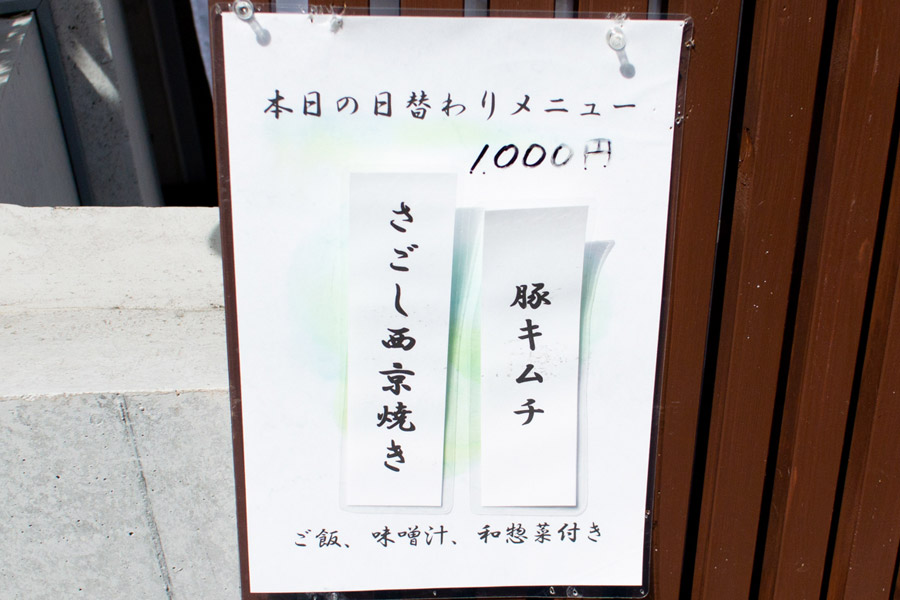 本日の日替わりメニュー
1000円
豚キムチ
さごし西京焼き
ご飯、味噌汁、和惣菜付き